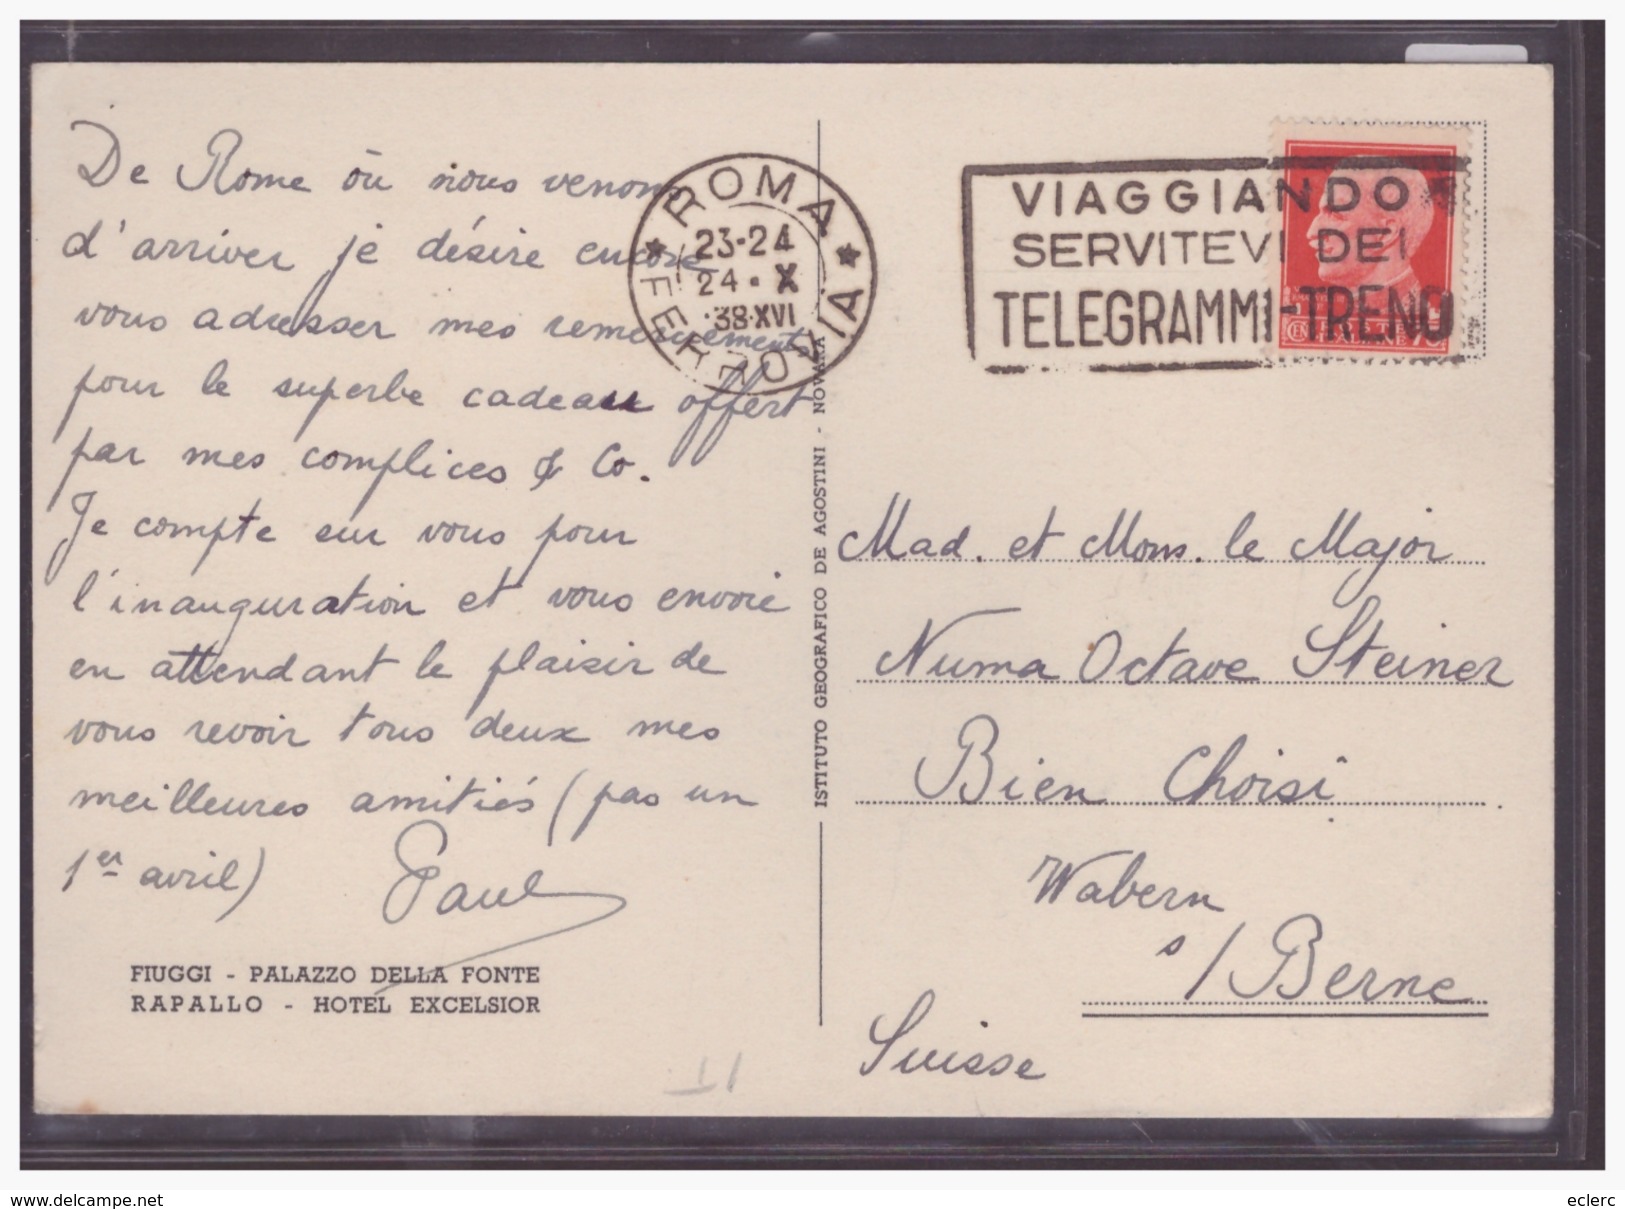 De Rome où nous venons
d'arriver je désire encore
vous adresser mes remerciements
pour le superbe cadeau offert
par mes complices & Co.
Je compte sur vous pour
l'inauguration et vous envoie
en attendant le plaisir de
vous revoir tous deux mes
meilleures amitiés (pas un
1er avril)
Paul
FIUGGI - PALAZZO DELLA FONTE
RAPALLO - HOTEL EXCELSIOR
ISTITUTO GEOGRAFICO DE AGOSTINI - NOVARA
★ ROMA ★
FERROVIA
23-24
24 · X
·38·XVI
VIAGGIANDO
SERVITEVI DEI
TELEGRAMMI-TRENO
Mad. et Mons. le Major
Numa Octave Steiner
Bien Choisi
Wabern
s/Berne
Suisse
www.delcampe.net
eclerc